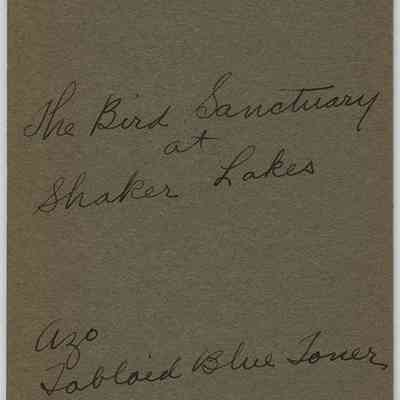 The Bird Sanctuary
at
Shaker Lakes
Azo
Tabloid Blue Toner